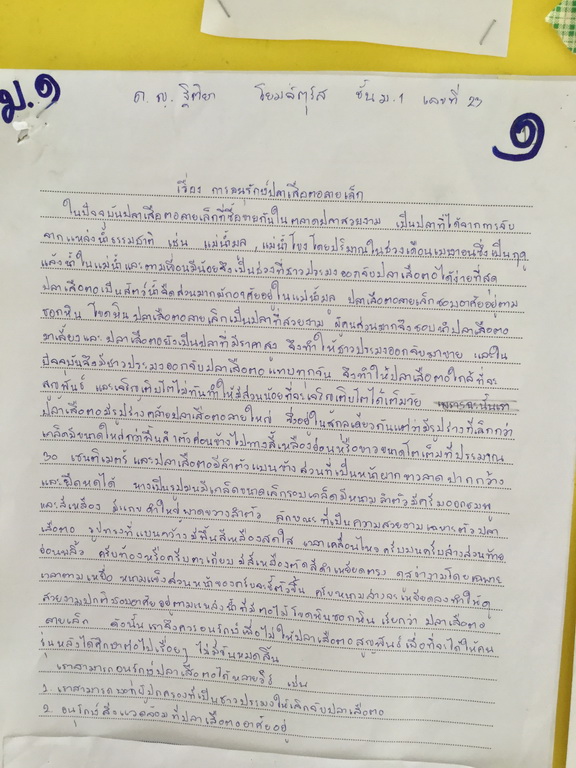 ม.๑
ด.ญ. ฐิติยา โยมจัตุรัส ชั้น ม.1 เลขที่ 23
๑
เรื่อง การอนุรักษ์ปลาเสือตอลายเล็ก
ในปัจจุบันปลาเสือตอลายเล็กที่ซื้อขายกันในตลาดปลาสวยงาม เป็นปลาที่ได้จากการจับ
จากแหล่งน้ำธรรมชาติ เช่น แม่น้ำมูล, แม่น้ำโขงโดยปริมาณในช่วงเดือนเมษายนซึ่งเป็นฤดู
แล้งน้ำในแม่น้ำและตามเขื่อนมีน้อยจึงเป็นช่วงที่ชาวประมงออกจับปลาเสือตอได้ง่ายที่สุด
ปลาเสือตอเป็นสัตว์น้ำจืดส่วนมากมักอาศัยอยู่ในแม่น้ำมูล ปลาเสือตอลายเล็กชอบอาศัยอยู่ตาม
ซอกหิน โขดหิน ปลาเสือตอลายเล็กเป็นปลาที่สวยงาม ผู้คนส่วนมากจึงชอบนำปลาเสือตอ
มาเลี้ยงและปลาเสือตอยังเป็นปลาที่มีราคาสูง จึงทำให้ชาวประมงออกจับมาขาย และใน
ปัจจุบันจึงมีชาวประมงออกจับปลาเสือตอแทบทุกวัน จึงทำให้ปลาเสือตอใกล้ที่จะ
สูญพันธุ์ และเจริญเติบโตไม่ทันทำให้มีส่วนน้อยที่จะเจริญเติบโตได้เต็มวัย
ปลาเสือตอมีรูปร่างคล้ายปลาเสือตอลายใหญ่ ซึ่งอยู่ในสกุลเดียวกันแต่ว่ามีรูปร่างที่เล็กกว่า
เกล็ดมีขนาดใหญ่กว่าพื้นลำตัวค่อนข้างไปทางสีเหลืองอ่อนหรือขาวขนาดโตเต็มที่ประมาณ
30 เซนติเมตร และปลาเสือตอมีลำตัวแบนข้างส่วนที่เป็นหน้าผากขาวลาด ปากกว้าง
และยืดหดได้ หางเป็นรูปมนมีเกล็ดขนาดเล็กรอบเกล็ดมีหนาม ลำตัวมีครีมออกชมพู
และสีเหลือง มีแถบดำใหญ่พาดขวางลำตัว ลักษณะที่เป็นความสวยงามเฉพาะตัว ปลา
เสือตอ รูปทรงที่แบนกว้าง มีพื้นสีเหลืองสดใส เวลาเคลื่อนไหว ครีบบนครีบล่างส่วนท้าย
อ่อนพลิ้ว ครีบท้องหรือครีบตะเกียบ มีสีเหลืองตัดสีดำเหยียดตรง ดูสง่างามโดยเฉพาะ
เวลาตามเหยื่อ หนามแข็งส่วนหน้าของครีบจะชี้ตั้งขึ้น ครีบหนามล่างจะเหยียดลงทำให้ดู
สวยงามปกติชอบอาศัยอยู่ตามแหล่งน้ำที่มีตอไม้ โขดหินซอกหิน เรียกว่า ปลาเสือตอ
ลายเล็ก ดังนั้นเราจึงควรอนุรักษ์เพื่อไม่ให้ปลาเสือตอสูญพันธุ์ เพื่อที่จะได้ให้คน
รุ่นหลังได้ศึกษาต่อไปเรื่อยๆ ไม่มีวันหมดสิ้น
เราสามารถอนุรักษ์ปลาเสือตอได้หลายวิธี เช่น
1. เราสามารถบอกผู้ปกครองที่เป็นชาวประมงให้เลิกจับปลาเสือตอ
2. อนุรักษ์สิ่งแวดล้อมที่ปลาเสือตออาศัยอยู่